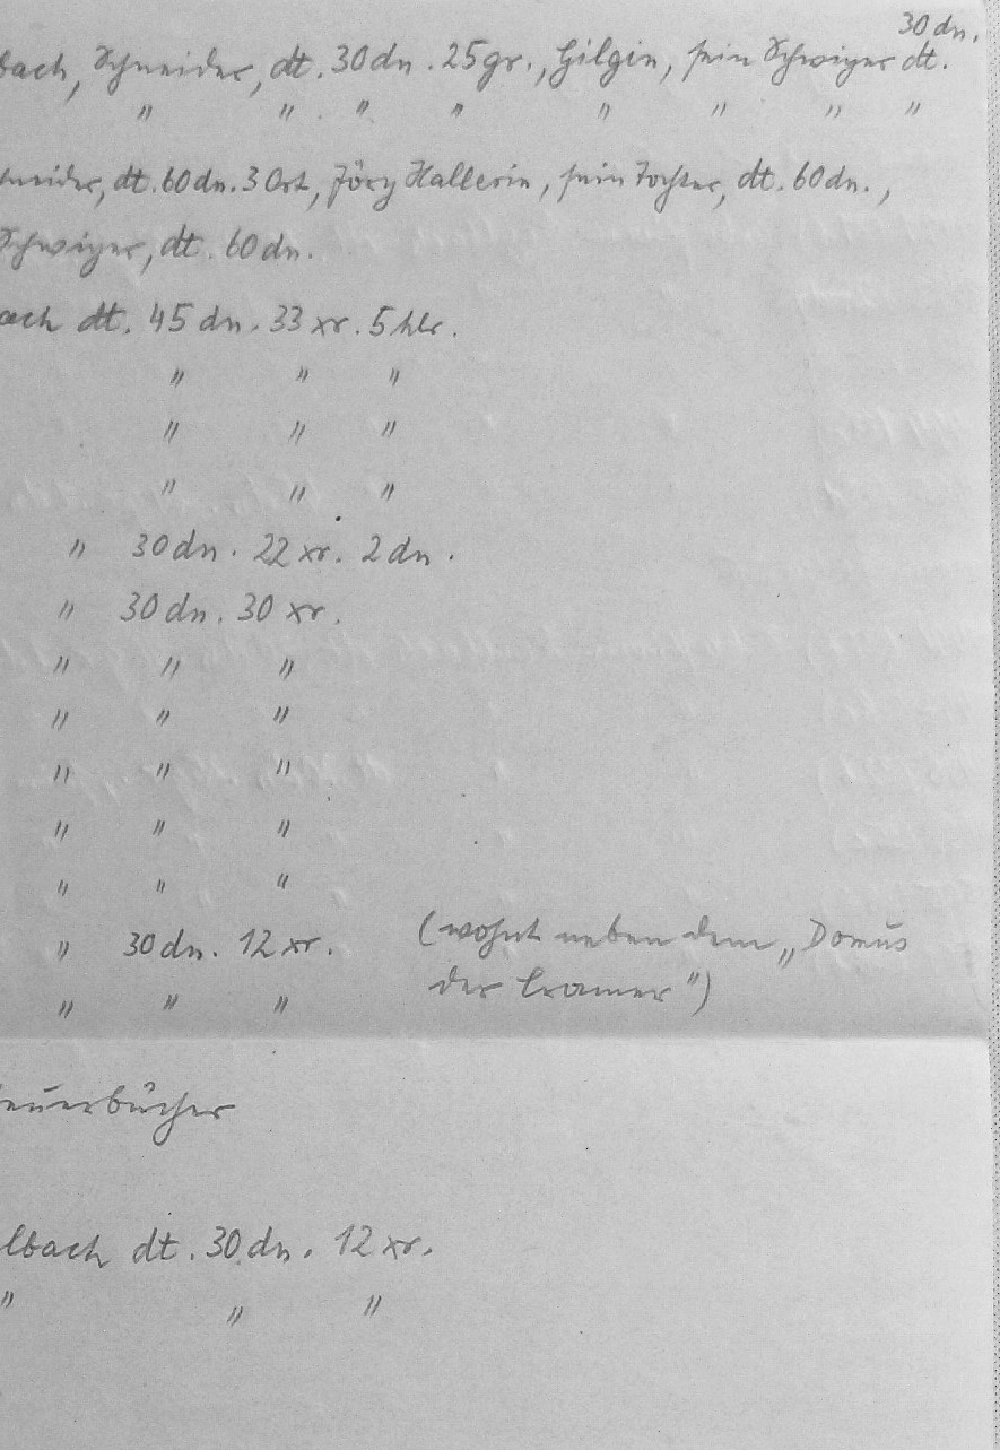 30 dn.
bach, Schneider, dt. 30 dn. 25 gr., Gilgin, sein Schwiger dt.
" " " " " " " "
neider, dt. 60 dn. 3 Ort, Jörg Hallerin, sein Tochter, dt. 60 dn.,
Schwiger, dt. 60 dn.
ach dt. 45 dn. 33 xr. 5 hlr.
" " "
" " "
" " "
" 30 dn. 22 xr. 2 dn.
" 30 dn. 30 xr.
" " "
" " "
" " "
" " "
" " "
" 30 dn. 12 xr. (wohnt neben dem „Domus
der Cramer")
" " "
euerbücher
lbach dt. 30 dn. 12 xr.
" " "